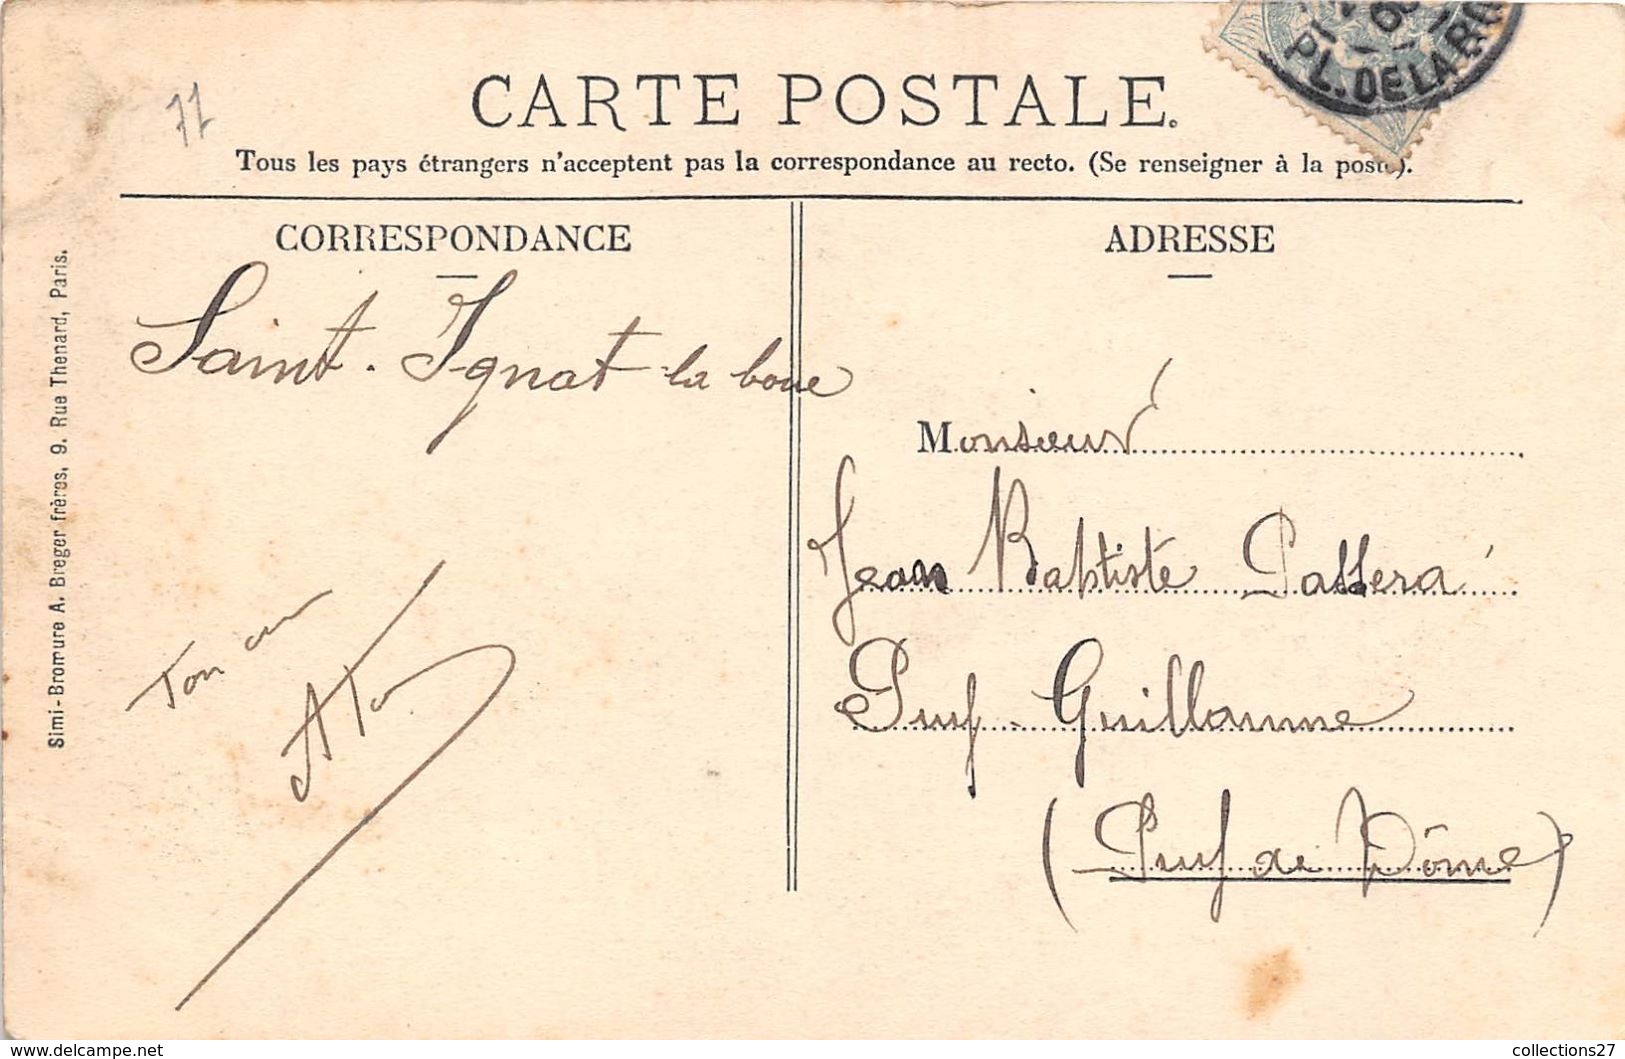 77
CARTE POSTALE.
Tous les pays étrangers n'acceptent pas la correspondance au recto. (Se renseigner à la poste).
PL. DE LA
CORRESPONDANCE
Saint. Ignat la boue
Ton
ADRESSE
Monsieur
Jean Baptiste Passera
Puy-Guillaume
(Puy de Dôme)
Simi-Bromure A. Breger frères, 9. Rue Thenard, Paris.
https://www.delcampe.net
collections27